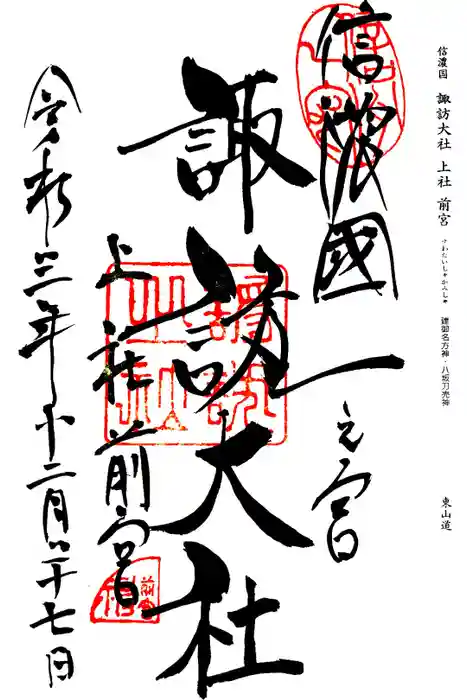 信濃国 諏訪大社 上社 前宮 すわたいしゃかみしゃ 建御名方神・八坂刀売神 東山道
信濃國一之宮
諏訪大社
上社前宮
令和三年十二月二十七日
諏訪
前宮